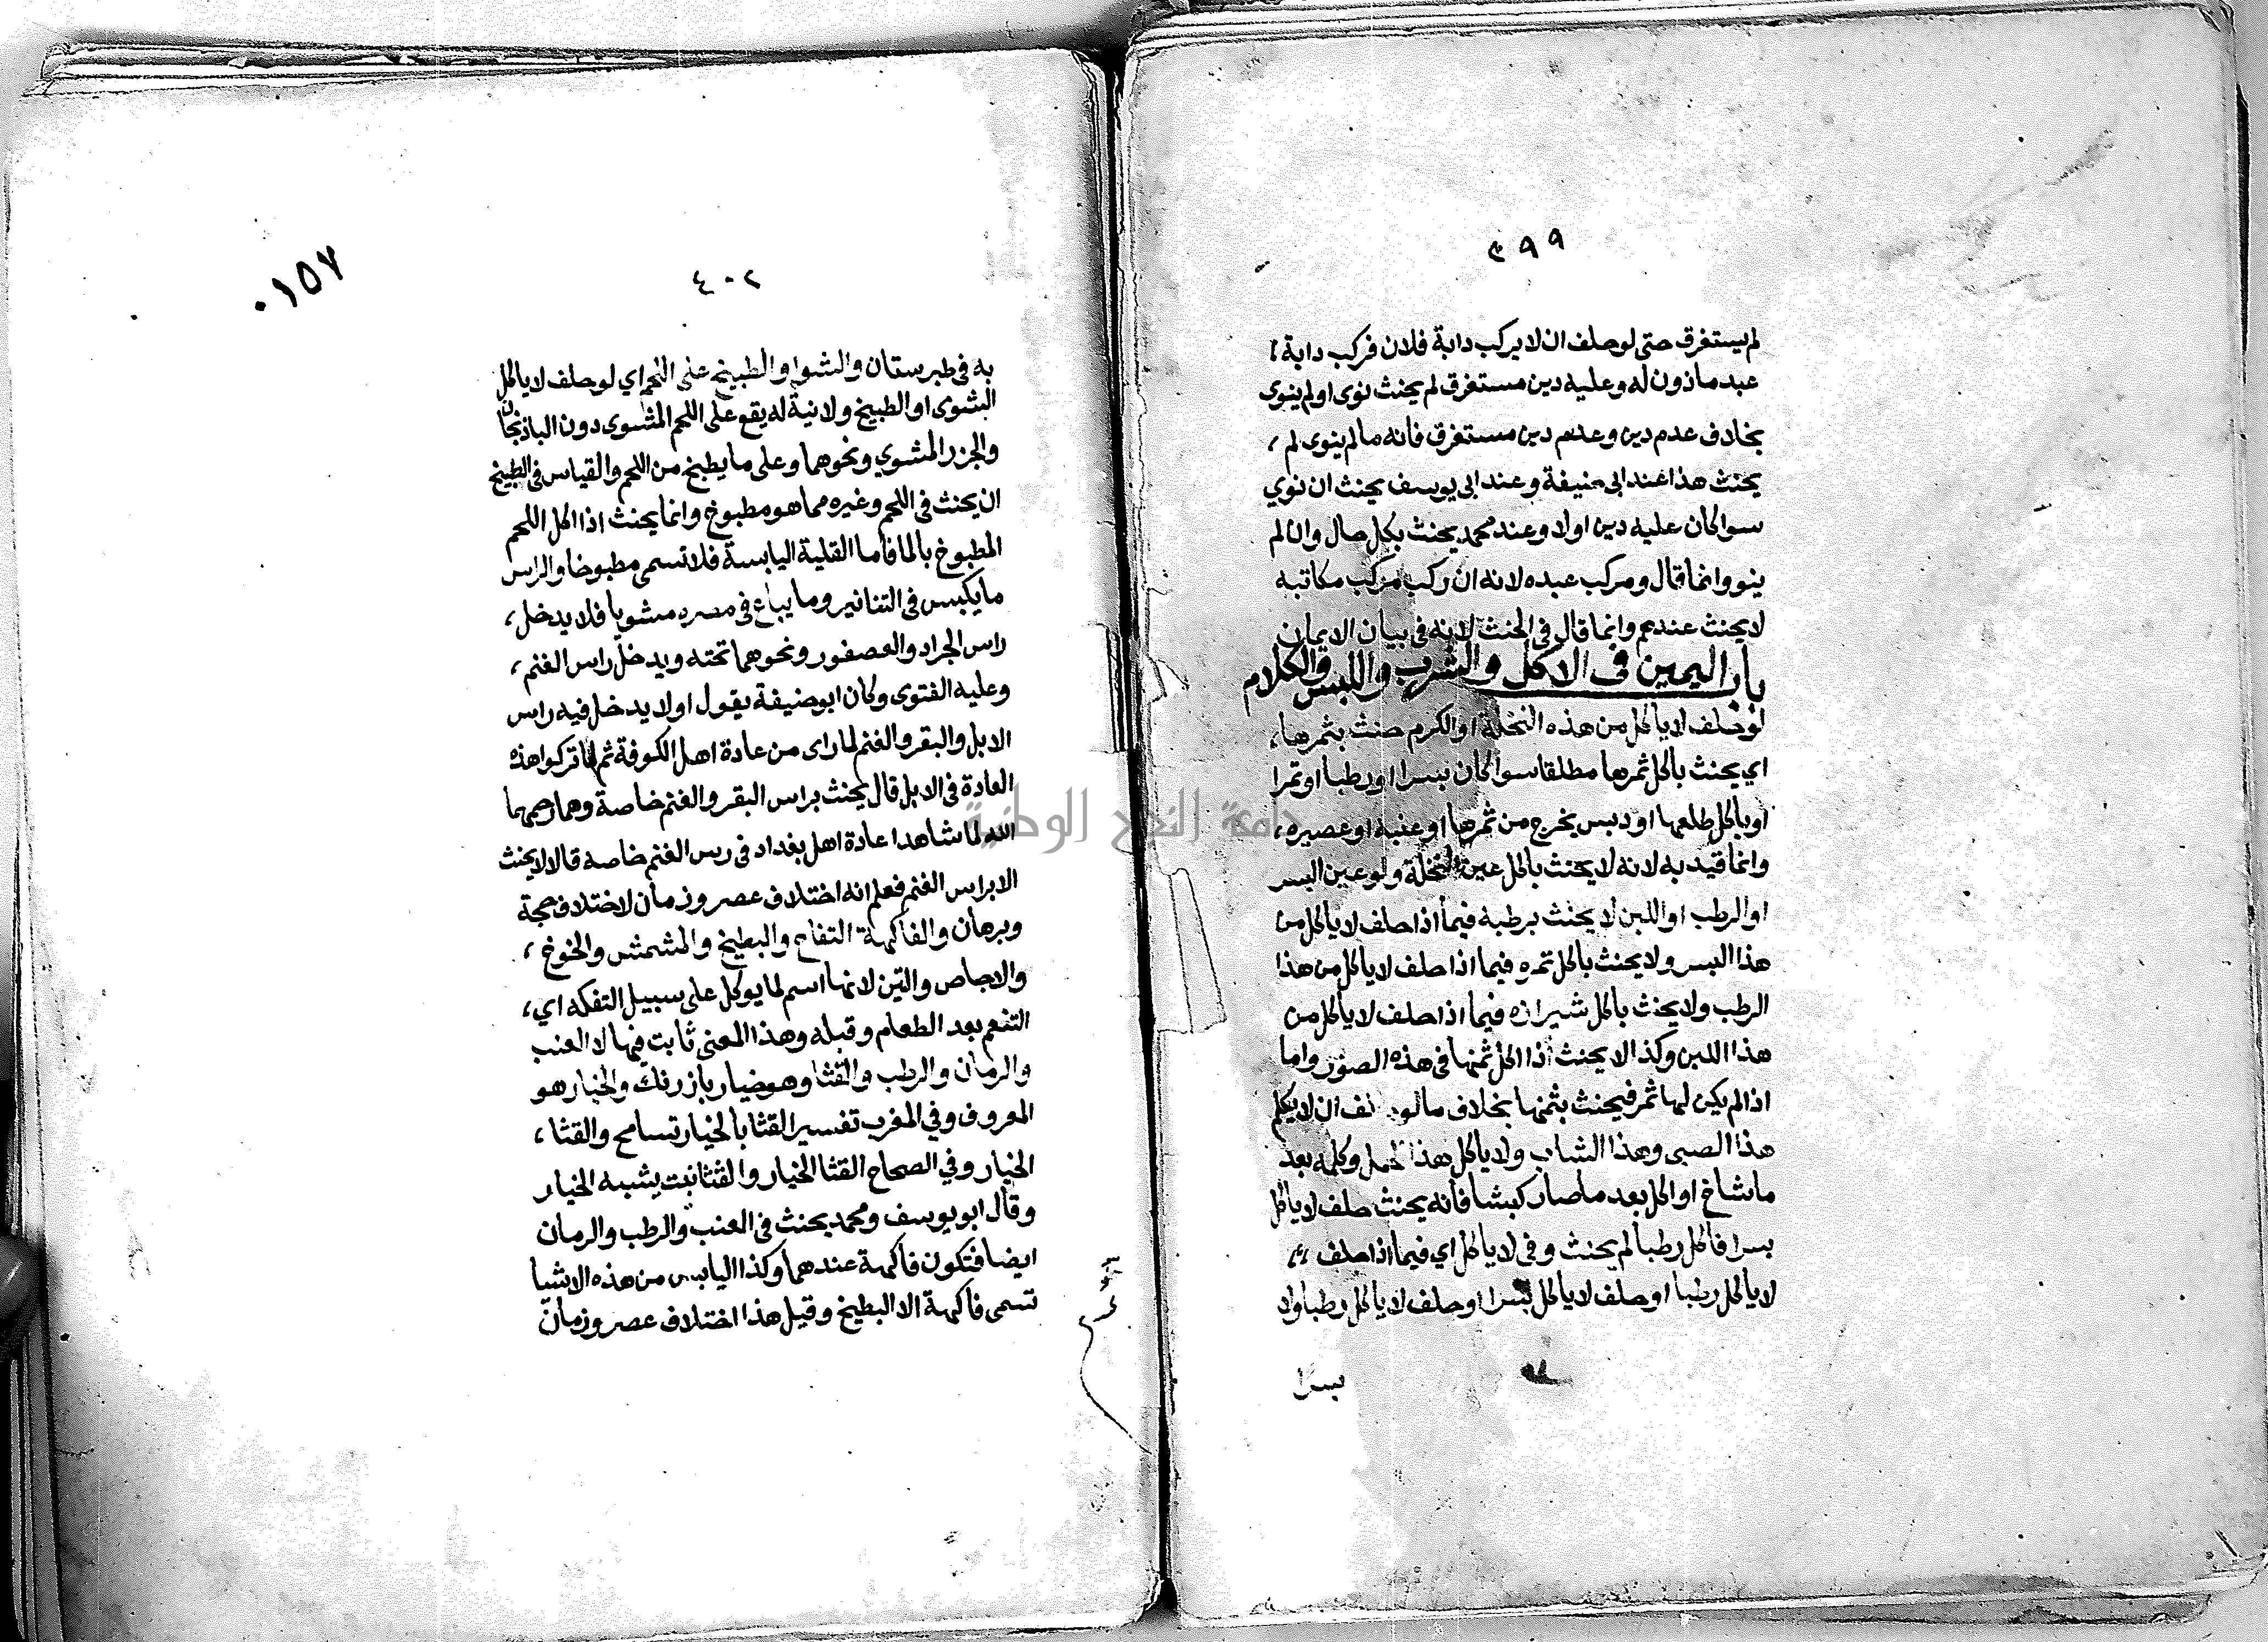 ٣٩٩
لم يستغرق حتى لو حلف ان لا يركب دابة فلان فركب دابة
عبد ماذون له وعليه دين مستغرق لم يحنث نوى او لم ينوى
بخلاف عدم دين وعدم دين مستغرق فانه ما لم ينوى لم
يحنث هذا عند ابى حنيفة وعند ابى يوسف يحنث ان نوي
سوا كان عليه دين اولا وعند محمد يحنث بكل حال وان لم
ينو وانما قال ومركب عبده لانه ان ركب مركب مكاتبه
لا يحنث عندهم وانما قال فى الحنث لانه فى بيان الايمان
باب اليمين فى الاكل والشرب واللبس والكلام
لو حلف لا ياكل من هذه النخلة او الكرم حنث بثمرها
اي يحنث باكل ثمرها مطلقا سوا كان بسرا او رطبا او تمرا
او باكل طلعها او دبس يخرج من ثمرها او عنبه او عصيره
وانما قيد به لانه لا يحنث باكل عين النخلة ولو عين البسر
او الرطب او اللبن لا يحنث برطبه فيما اذا حلف لا ياكل من
هذا البسر ولا يحنث باكل تمره فيما اذا حلف لا ياكل من هذا
الرطب ولا يحنث باكل شيرازه فيما اذا حلف لا ياكل من
هذا اللبن وكذا لا يحنث اذا اكل ثمنها فى هذه الصور واما
اذا لم يكن لها ثمر فيحنث بثمنها بخلاف ما لو لف ان لا يكلم
هذا الصبى وهذا الشاب ولا ياكل هذا الحمل وكلمه بعد
ما شاخ او اكل بعد ما صار كبشا فانه يحنث حلف لا ياكل
بسرا فاكل رطبا لم يحنث وفى لا ياكل اي فيما اذا حلف
لا ياكل رطبا او حلف لا ياكل بسرا او حلف لا ياكل رطبا ولا
بسرا
٤٠٢
٠١٥٧
به فى طبرستان والشوا والطبيخ على اللحم اي لو حلف لا ياكل
الشوى او الطبيخ ولا نية له يقع على اللحم المشوى دون الباذنجان
والجزر المشوي ونحوهما وعلى ما يطبخ من اللحم والقياس فى الطبيخ
ان يحنث فى اللحم وغيره مما هو مطبوخ وانما يحنث اذا اكل اللحم
المطبوخ بالما فاما القلية اليابسة فلا تسمى مطبوخا والراس
ما يكبس فى التنانير وما يباع فى مصره مشويا فلا يدخل
راس الجراد والعصفور ونحوهما تحته ويدخل راس الغنم
وعليه الفتوى وكان ابو حنيفة يقول اولا يدخل فيه راس
الابل والبقر والغنم لما راى من عادة اهل الكوفة ثم لما تركوا هذه
العادة فى الابل قال يحنث براس البقر والغنم خاصة وهما رحمهما
الله لما شاهدا عادة اهل بغداد فى ريس الغنم خاصة قالا لا يحنث
الا براس الغنم فعلم انه اختلاف عصر وزمان لا اختلاف حجة
وبرهان والفاكهة التفاح والبطيخ والمشمش والخوخ
والاجاص والتين لانها اسم لما يوكل على سبيل التفكه اي
التنعم بعد الطعام وقبله وهذا المعنى ثابت فيها لا العنب
والرمان والرطب والقثا وهو خيار بازرنك والخيار هو
المعروف وفي المغرب تفسير القثا بالخيار تسامح والقثا
الخيار وفي الصحاح القثا الخيار والقثا نبت يشبه الخيار
وقال ابو يوسف ومحمد يحنث فى العنب والرطب والرمان
ايضا فتكون فاكهة عندهما وكذا اليابس من هذه الاشيا
تسمى فاكهة الا البطيخ وقيل هذا اختلاف عصر وزمان
جامعة النجاح الوطنية